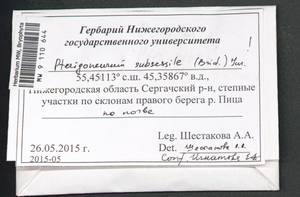 Гербарий Нижегородского
государственного университета
Pterigoneurum subsessile (Brid.) Jur.
55,45113° с.ш. 45,35867° в.д.,
Нижегородская область Сергачский р-н, степные
участки по склонам правого берега р. Пица
по почве
Leg. Шестакова А.А.
26.05.2015 г.
Det. Шестакова А.А.
2015-05
Conf. Игнатова
Herbarium MW, Bryophyta
MW 9 110 644